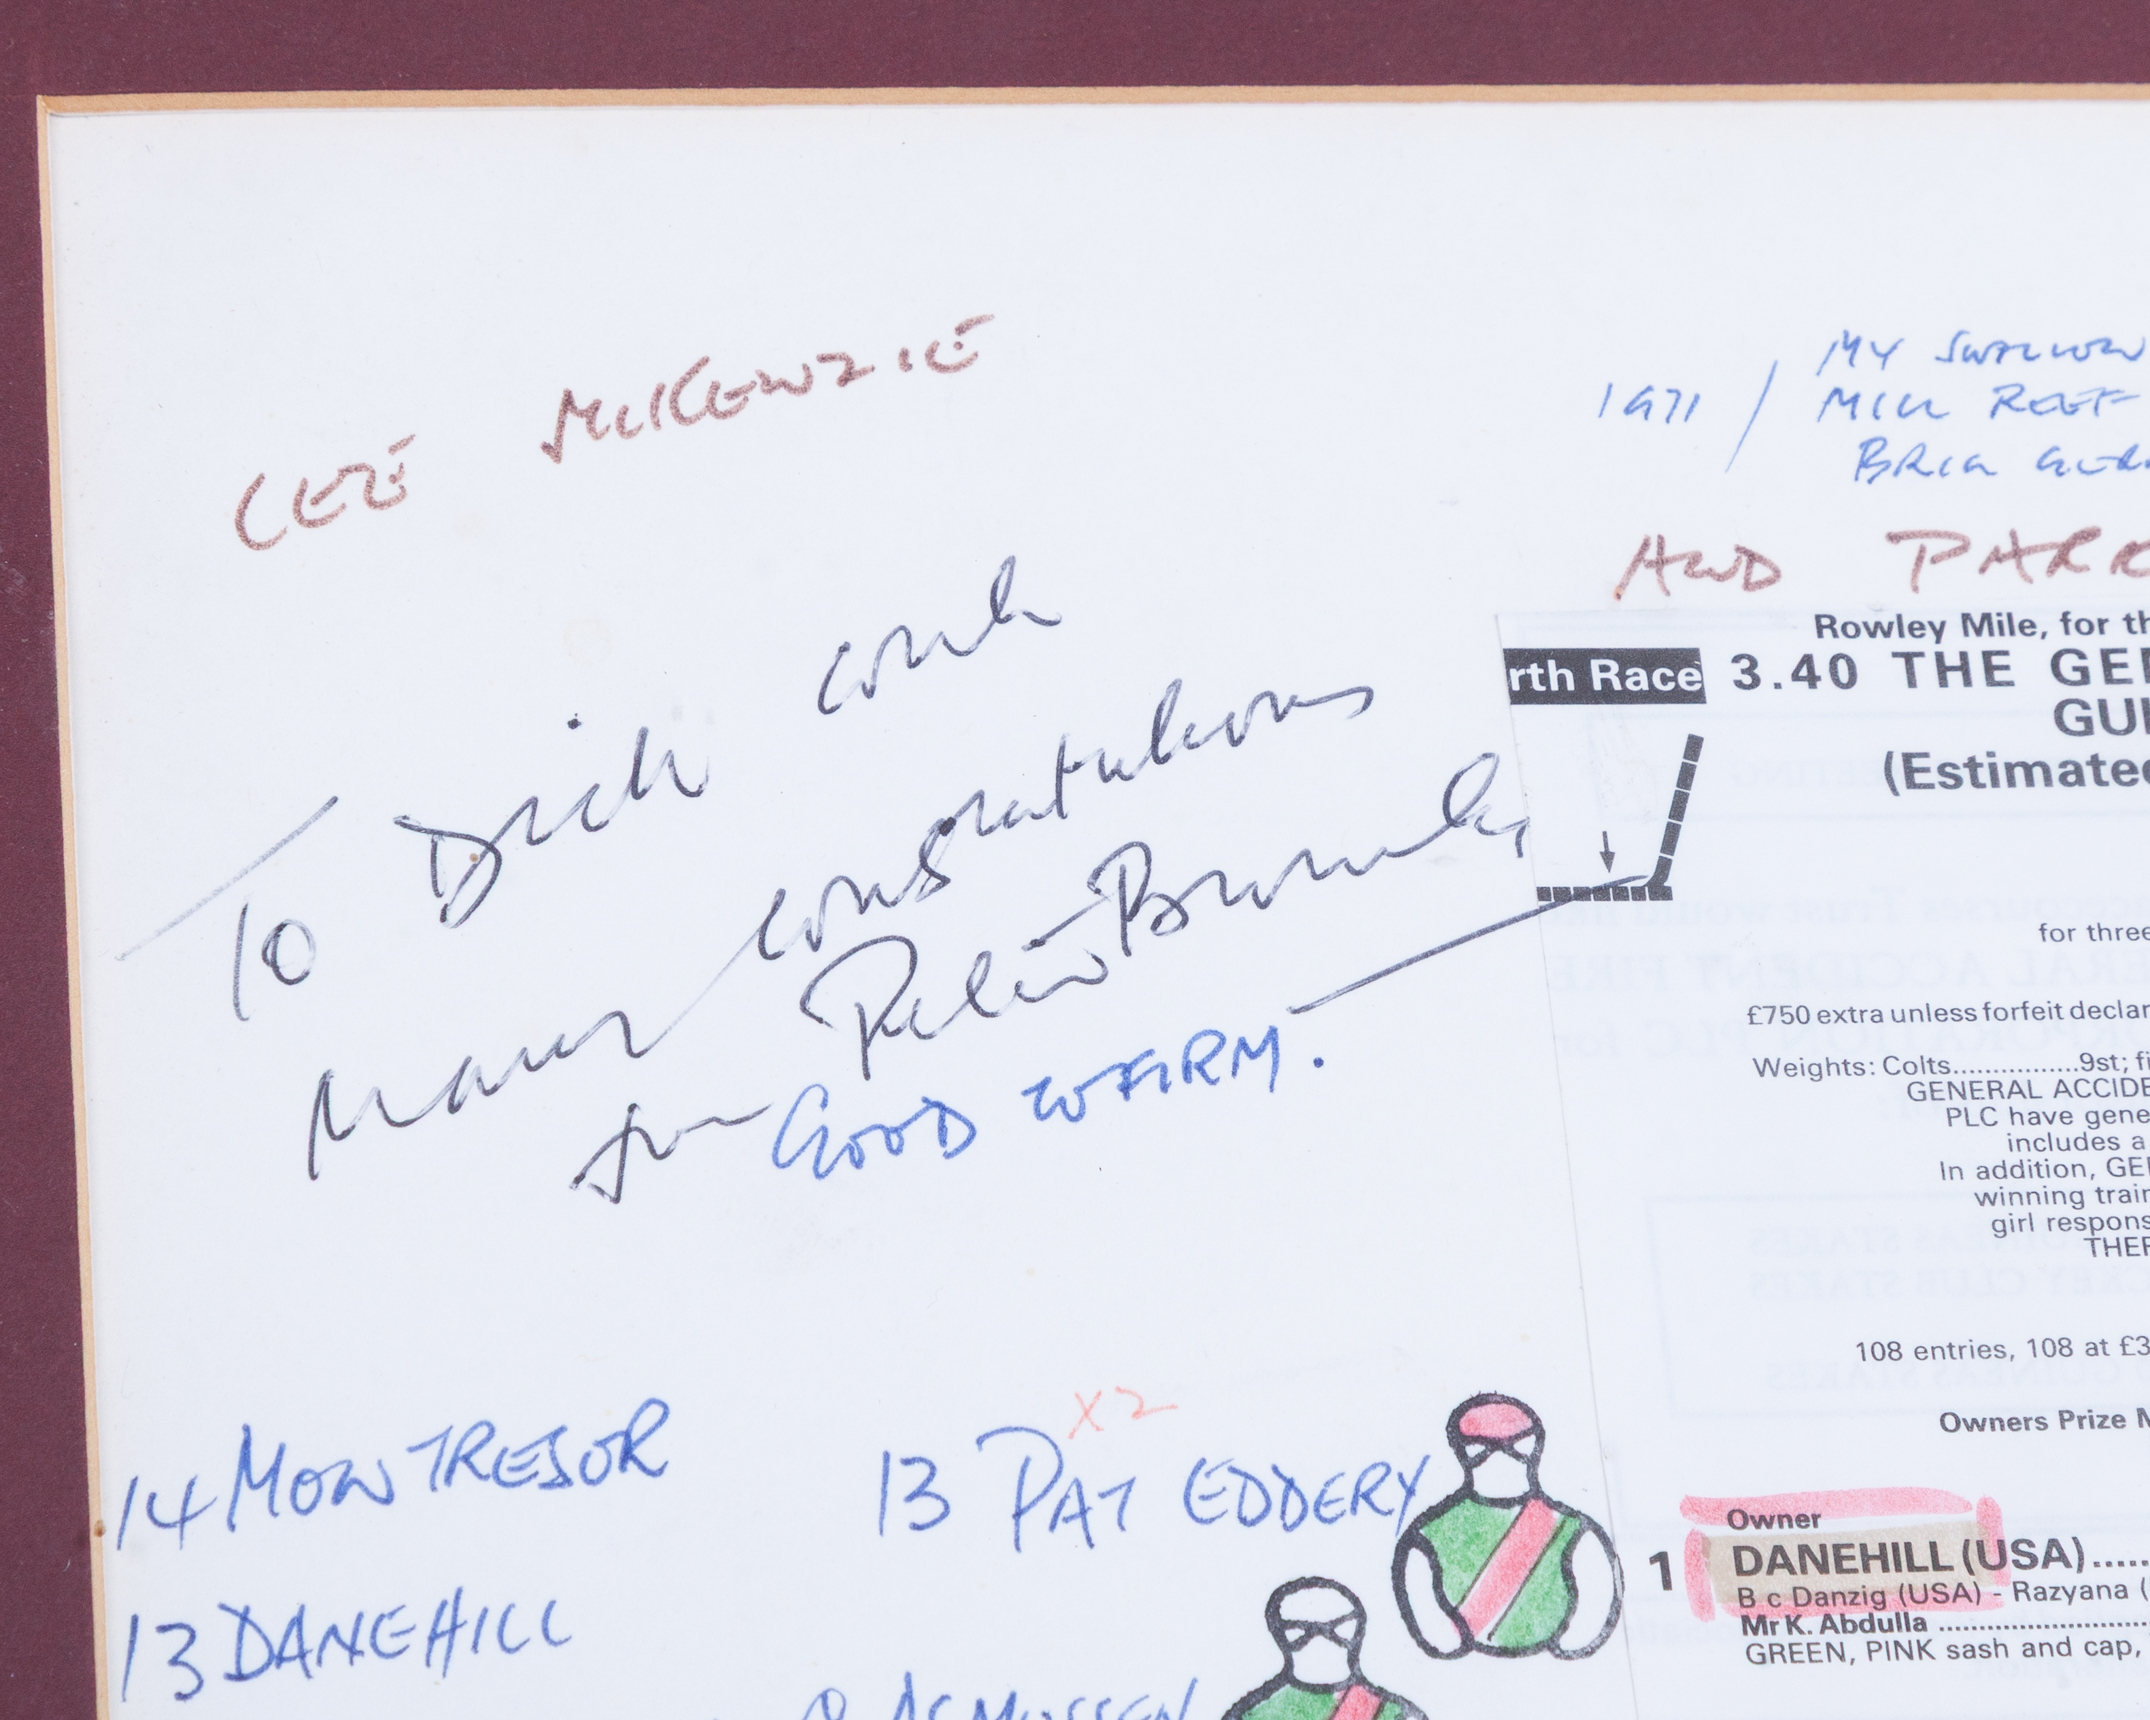 LEE McKENZIE
1971 / MY SWALLOW
MILL REEF
BRIG GER
AND PARR
To Dick with
many congratulations
from Peter Bromley
GOOD to FIRM.
Rowley Mile, for th
rth Race 3.40 THE GE
GUI
(Estimated
for three
£750 extra unless forfeit declar
Weights: Colts................9st; fi
GENERAL ACCIDE
PLC have gene
includes a
In addition, GE
winning train
girl respons
THE
108 entries, 108 at £3
Owners Prize M
X2
14 MONTRESOR 13 PAT EDDERY
Owner
1 DANEHILL (USA).....
B c Danzig (USA) - Razyana (
Mr K. Abdulla
GREEN, PINK sash and cap,
13 DANEHILL
ASMUSSEN